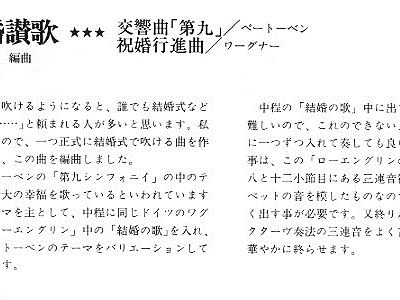 婚讃歌 ★★★ 交響曲「第九」／ベートーベン
祝婚行進曲／ワーグナー
編曲
吹けるようになると、誰でも結婚式など
……」と頼まれる人が多いと思います。私
ので、一つ正式に結婚式で吹ける曲を作
、この曲を編曲しました。
ーベンの「第九シンフォナイ」の中のテ
大の幸福を歌っているといわれています
マを主として、中程に同じドイツのワグ
ーエングリン」中の「結婚の歌」を入れ、
トーベンのテーマをバリエーションして
す。
中程の「結婚の歌」中に出
難しいので、これのできない
に一つずつ入れて奏しても良
事は、この「ローエングリン
八と十二小節目にある三連音
ペットの音を模したものなので
く出す事が必要です。又終り
クターヴ奏法の三連音をよく
華やかに終らせます。